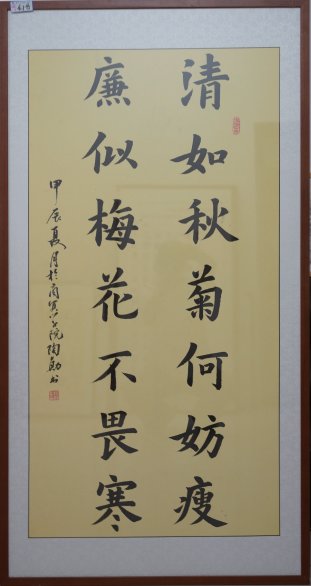 清如秋菊何妨瘦
廉似梅花不畏寒
甲辰夏月於商
陶勛书